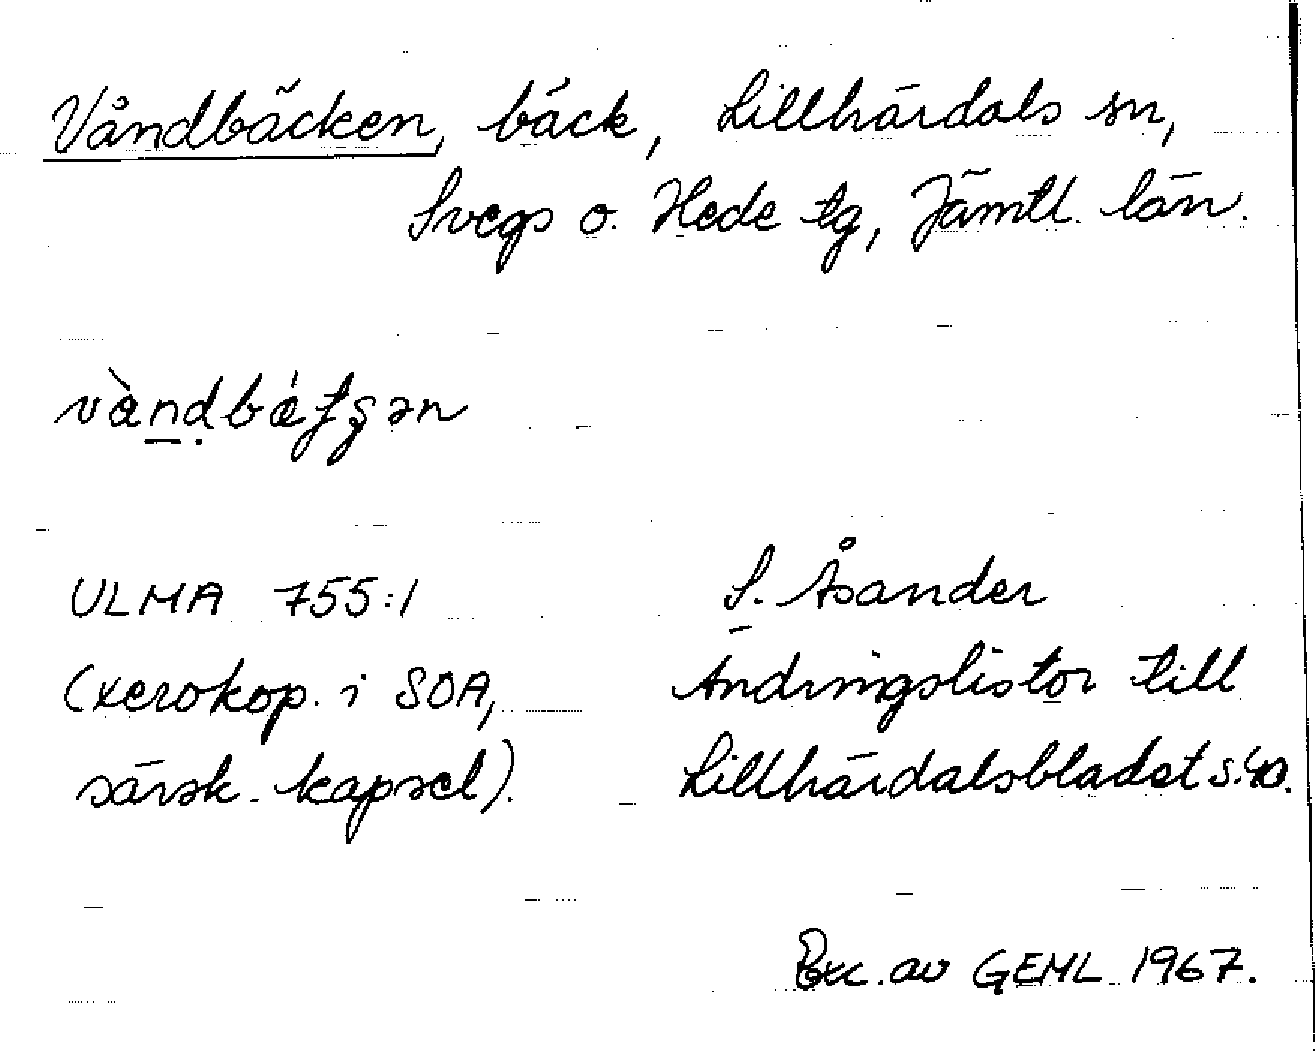 Våndbäcken, bäck, Lillhärdals sn,
Svegs o. Hede tg, Jämtl. län.
ULMA 755:1
(xerokop. i SOA,
särsk. kapsel).
S. Åsander
Ändringslistor till
Lillhärdalsbladet s. 40.
Exc. av GEML 1967.